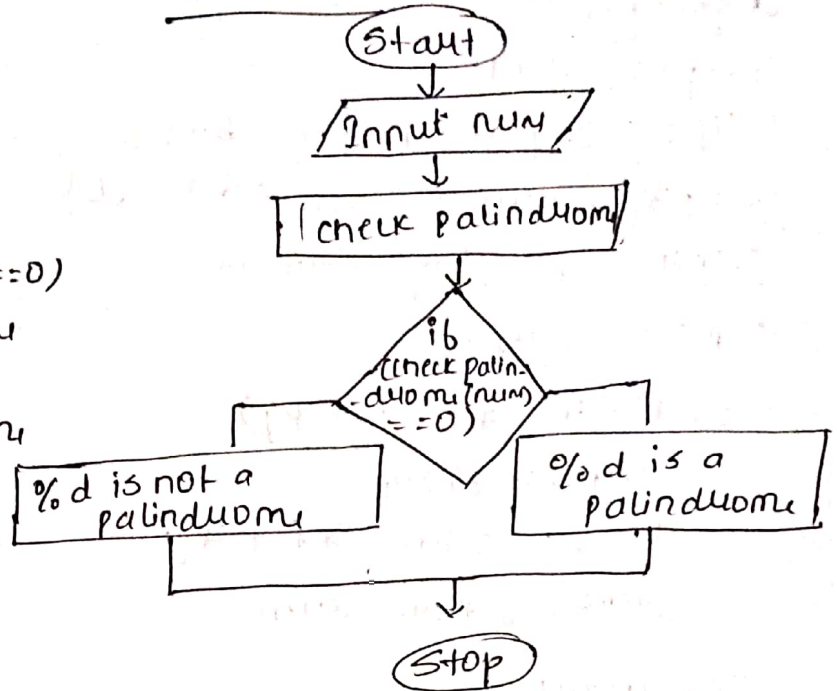 Start
Input num
check palindrome
==0)
if
(check palin-
-drome (num)
==0)
%d is not a
palindrome
%d is a
palindrome
Stop